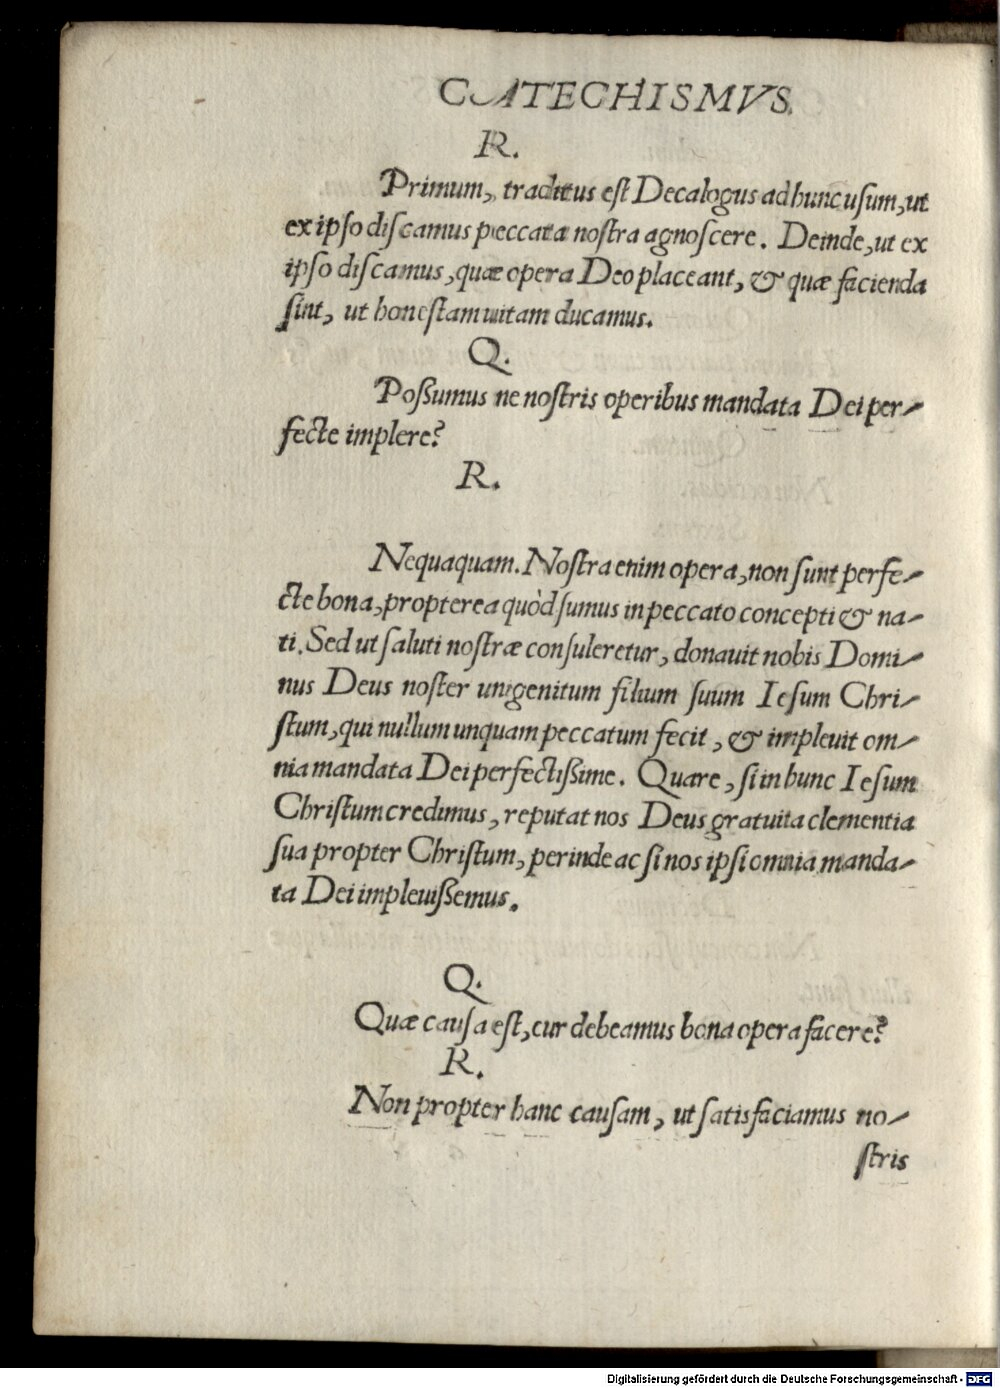 CATECHISMVS.
R.
Primum, traditus est Decalogus ad hunc usum, ut
ex ipso discamus peccata nostra agnoscere. Deinde, ut ex
ipso discamus, quæ opera Deo placeant, & quæ facienda
sint, ut honestam uitam ducamus.
Q.
Poßumus ne nostris operibus mandata Dei per-
fecte implere?
R.
Nequaquam. Nostra enim opera, non sunt perfe-
cte bona, propterea quòd sumus in peccato concepti & na-
ti. Sed ut saluti nostræ consuleretur, donauit nobis Domi-
nus Deus noster unigenitum filium suum Iesum Chri-
stum, qui nullum unquam peccatum fecit, & impleuit om-
nia mandata Dei perfectißime. Quare, si in hunc Iesum
Christum credimus, reputat nos Deus gratuita clementia
sua propter Christum, perinde ac si nos ipsi omnia manda-
ta Dei impleuißemus.
Q.
Quæ causa est, cur debeamus bona opera facere?
R.
Non propter hanc causam, ut satisfaciamus no-
stris
Digitalisierung gefördert durch die Deutsche Forschungsgemeinschaft - DFG